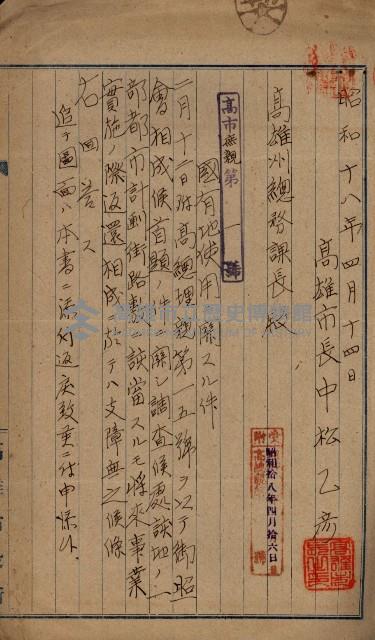 昭和十八年四月十四日
高雄市長中松乙彦
高雄州總務課長殿
高市庶親第一號
國有地使用ニ關スル件
二月十二日附高總理親第一五號ヲ以テ御照
會相成候首題ノ件ニ關シ調査候處該地ノ一
部都市計劃街路敷ニ該當スルモ將來事業
實施ノ際返還相成ルニ於テハ支障無之候條
右回答ス
追テ圖面ハ本書ニ添附返戻致
昭和拾八年四月拾六日
高雄市立歷史博物館